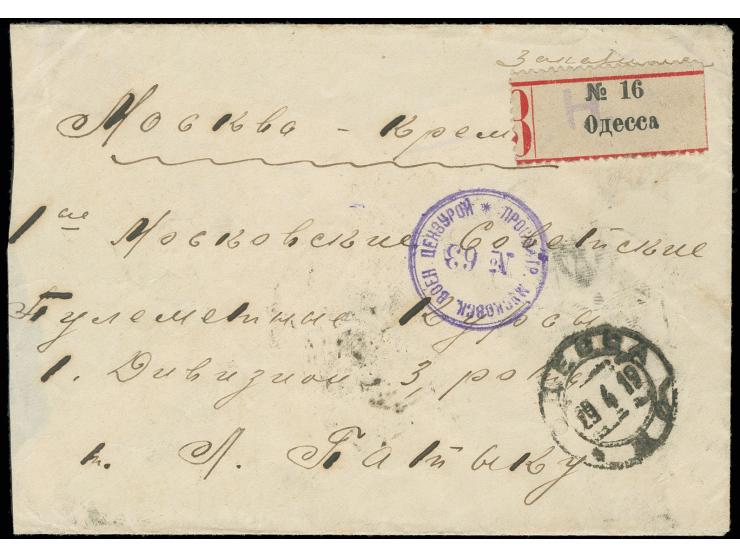 Заказное
З Н
№ 16
Одесса
Москва - Крем
1ые Московские Советские
Пулеметные Курсы
1. Дивизион 3, роты
т. Л.
ПРОСМОТР. МОСКОВСК. ВОЕН ЦЕНЗУРОЙ *
№ 63
ОДЕССА
29 4 19